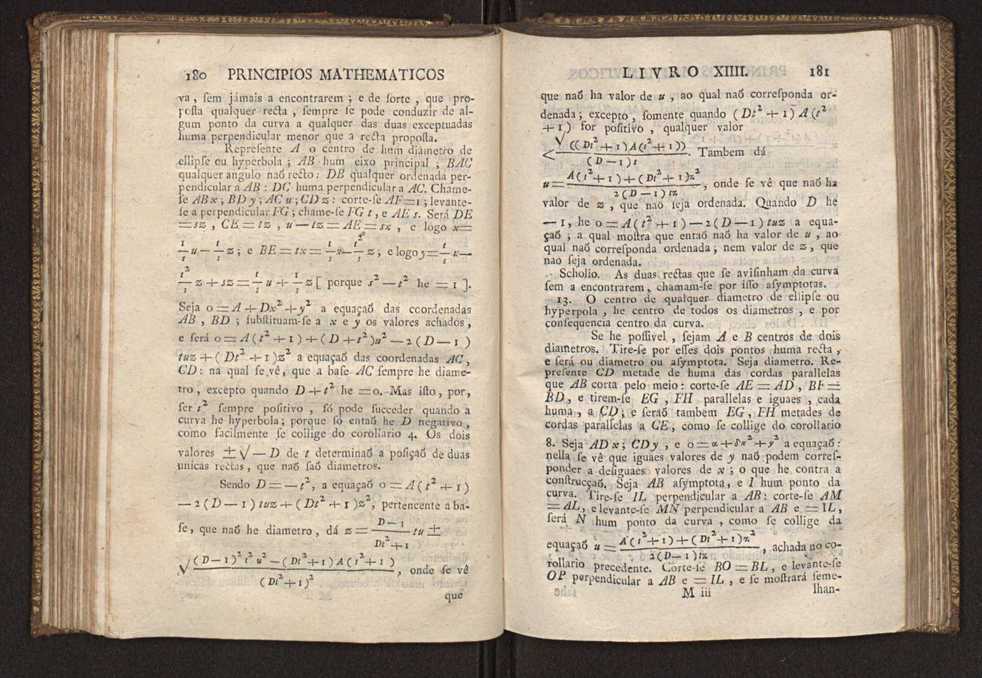 180 PRINCIPIOS MATHEMATICOS
va , ſem jámais a encontrarem ; e de ſorte , que pro-
poſta qualquer recta , ſempre ſe pode conduzir de al-
gum ponto da curva a qualquer das duas exceptuadas
huma perpendicular menor que a recta propoſta.
Repreſente A o centro de hum diametro de
ellipſe ou hyperbola ; AB hum eixo principal , BAC
qualquer angulo naõ recto : DB qualquer ordenada per-
pendicular a AB : DC huma perpendicular a AC. Chame-
ſe AB x ; BD y ; AC u ; CD z : corte-ſe AF = 1 ; levante-
ſe a perpendicular FG ; chame-ſe FG t , e AE s. Será DE
= sz , CE = tz , u — tz = AE = sx , e logo x =
1/s u — t/s z ; e BE = tx = t/s u — t²/s z ; e logo y = t/s u —
t²/s z + sz = t/s u + 1/s z [ porque s² — t² he = 1 ].
Seja 0 = A + Dx² + y² a equaçaõ das coordenadas
AB , BD ; ſubſtituam-ſe a x e y os valores achados ,
e ſerá 0 = A ( t² + 1 ) + ( D + t² ) u² — 2 ( D — 1 )
tuz + ( Dt² + 1 ) z² a equaçaõ das coordenadas AC ,
CD : na qual ſe vê, que a baſe AC ſempre he diame-
tro , excepto quando D + t² he = 0. Mas iſto , por,
ſer t² ſempre poſitivo , ſó pode ſucceder quando a
curva he hyperbola ; porque ſó entaõ he D negativo ,
como facilmente ſe collige do corollario 4. Os dois
valores ± √ — D de t determinaõ a poſiçaõ de duas
unicas rectas , que naõ ſaõ diametros.
Sendo D = — t² , a equaçaõ 0 = A ( t² + 1 )
— 2 ( D — 1 ) tuz + ( Dt² + 1 ) z² , pertencente a ba-
ſe , que naõ he diametro , dá z = (D — 1)/(Dt² + 1) tu ±
√ (( D — 1 )² t² u² — ( Dt² + 1 ) A ( t² + 1 ))/( Dt² + 1 )² , onde ſe vê
que
LIVRO XIIII. 181
que naõ ha valor de u , ao qual naõ correſponda or-
denada ; excepto , ſomente quando ( Dt² + 1 ) A ( t²
+ 1 ) for poſitivo , qualquer valor
< √ (( Dt² + 1 ) A ( t² + 1 ))/( D — 1 ) t . Tambem dá
u = (A ( t² + 1 ) + ( Dt² + 1 ) z²)/(2 ( D — 1 ) tz) , onde ſe vê que naõ ha
valor de z , que naõ ſeja ordenada. Quando D he
— 1 , he 0 = A ( t² + 1 ) — 2 ( D — 1 ) tuz a equa-
çaõ ; a qual moſtra que entaõ naõ ha valor de u , ao
qual naõ correſponda ordenada ; nem valor de z , que
naõ ſeja ordenada.
Scholio. As duas rectas que ſe aviſinham da curva
ſem a encontrarem , chamam-ſe por iſſo aſymptotas.
13. O centro de qualquer diametro de ellipſe ou
hyperpola , he centro de todos os diametros , e por
conſequencia centro da curva.
Se he poſſivel , ſejam A e B centros de dois
diametros. Tire-ſe por eſſes dois pontos huma recta ,
e ſerá ou diametro ou aſymptota. Seja diametro. Re-
preſente CD metade de huma das cordas parallelas
que AB corta pelo meio : corte-ſe AE = AD , BF =
BD , e tirem-ſe EG , FH parallelas e iguaes , cada
huma , a CD ; e ſeraõ tambem EG , FH metades de
cordas parallelas a CE , como ſe collige do corollario
8. Seja AD x ; CD y , e 0 = α + δx² + y² a equaçaõ :
nella ſe vê que iguaes valores de y naõ podem correſ-
ponder a deſiguaes valores de x ; o que he contra a
conſtrucçaõ. Seja AB aſymptota , e I hum ponto da
curva. Tire-ſe IL perpendicular a AB : corte-ſe AM
= AL , e levante-ſe MN perpendicular a AB e = IL ,
ſerá N hum ponto da curva , como ſe collige da
equaçaõ u = (A ( t² + 1 ) + ( Dt² + 1 ) z²)/(2 ( D — 1 ) tz) , achada no co-
rollario precedente. Corte-ſe BO = BL , e levante-ſe
OP perpendicular a AB e = IL , e ſe moſtrará ſeme-
M iii lhan-